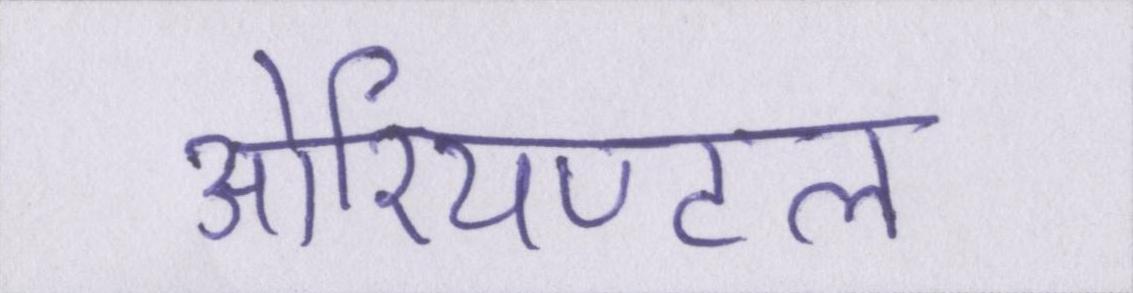 ओरियण्टल